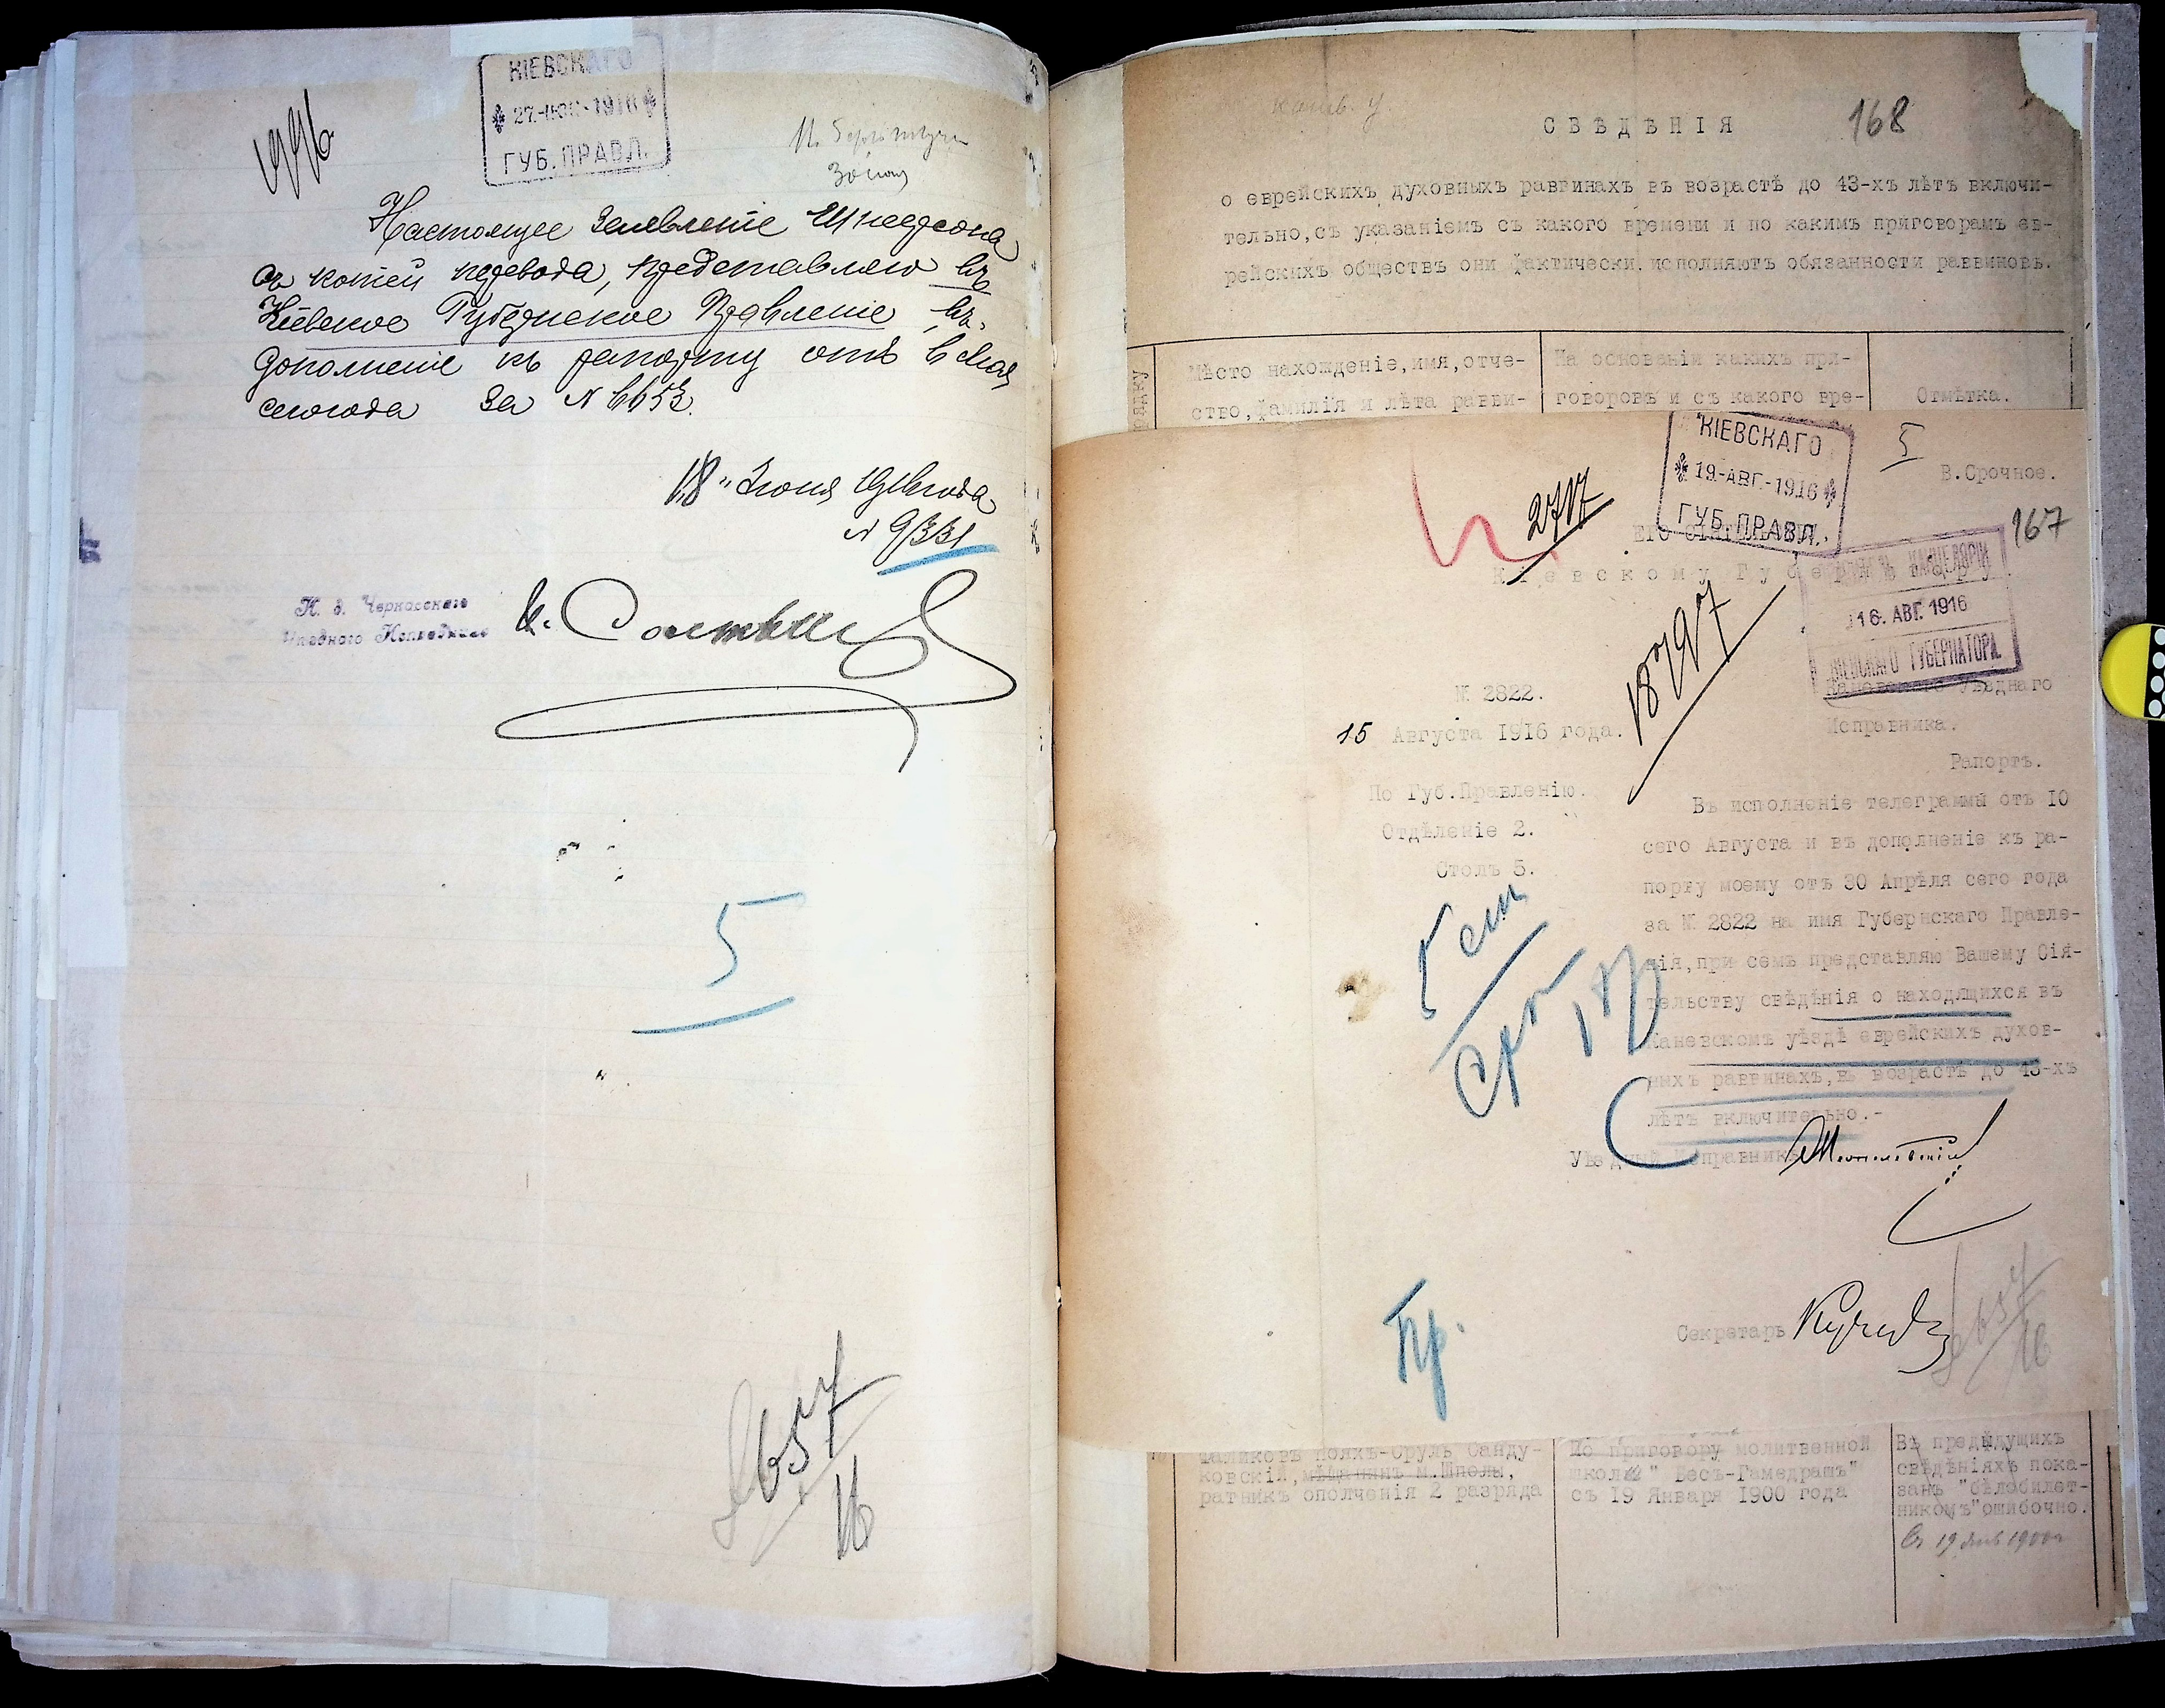 КІЕВСКАГО
27-ІЮН-1916
ГУБ. ПРАВЛ.
Настоящее заявленіе Шнеерсона
съ копіей перевода, представляю въ
Кіевское Губернское Правленіе въ
дополненіе къ рапорту отъ 6 Мая
сего года за №6653.
"18" Іюня 1916 года
№ 9331
И. д. Черкасскаго
Уѣзднаго Исправника
5
657
16
168
СВѢДѢНІЯ
о еврейскихъ духовныхъ раввинахъ въ возрастѣ до 43-хъ лѣтъ включи-
тельно, съ указаніемъ съ какого времени и по какимъ приговорамъ ев-
рейскихъ обществъ они фактически исполняютъ обязанности раввиновъ.
Мѣсто нахожденіе, имя, отче-
ство, фамилія и лѣта равви-
На основаніи какихъ при-
говоровъ и съ какого вре-
Отмѣтка.
КІЕВСКАГО
19-АВГ.-1916
ГУБ. ПРАВЛ.
5
В.Срочное.
2717
167
Кіевскому Губернатору
КАНЦЕЛЯРІИ
16. АВГ. 1916
КІЕВСКАГО ГУБЕРНАТОРА.
18797
Каневскаго Уѣзднаго
Исправника.
Рапортъ.
№ 2822.
15 Августа 1916 года.
По Губ.Правленію.
Отдѣленіе 2.
Столъ 5.
Въ исполненіе телеграммы отъ 10
сего Августа и въ дополненіе къ ра-
порту моему отъ 30 Апрѣля сего года
за № 2822 на имя Губернскаго Правле-
нія, при семъ представляю Вашему Сія-
тельству свѣдѣнія о находящихся въ
Каневскомъ уѣздѣ еврейскихъ духов-
ныхъ раввинахъ, въ возрастѣ до 43-хъ
лѣтъ включительно.-
5 ст
Уѣздный Исправникъ
Пр.
Секретарь
657
16
Маликовъ Нояхъ-Сруль Санду-
ковскій, мѣщанинъ м.Шполы,
ратникъ ополченія 2 разряда
По приговору молитвенной
школы "Бесъ-Гамедрашъ"
съ 19 Января 1900 года
Въ предыдущихъ
свѣдѣніяхъ пока-
занъ "бѣлобилет-
никомъ" ошибочно.
Съ 19 янв 1900 г